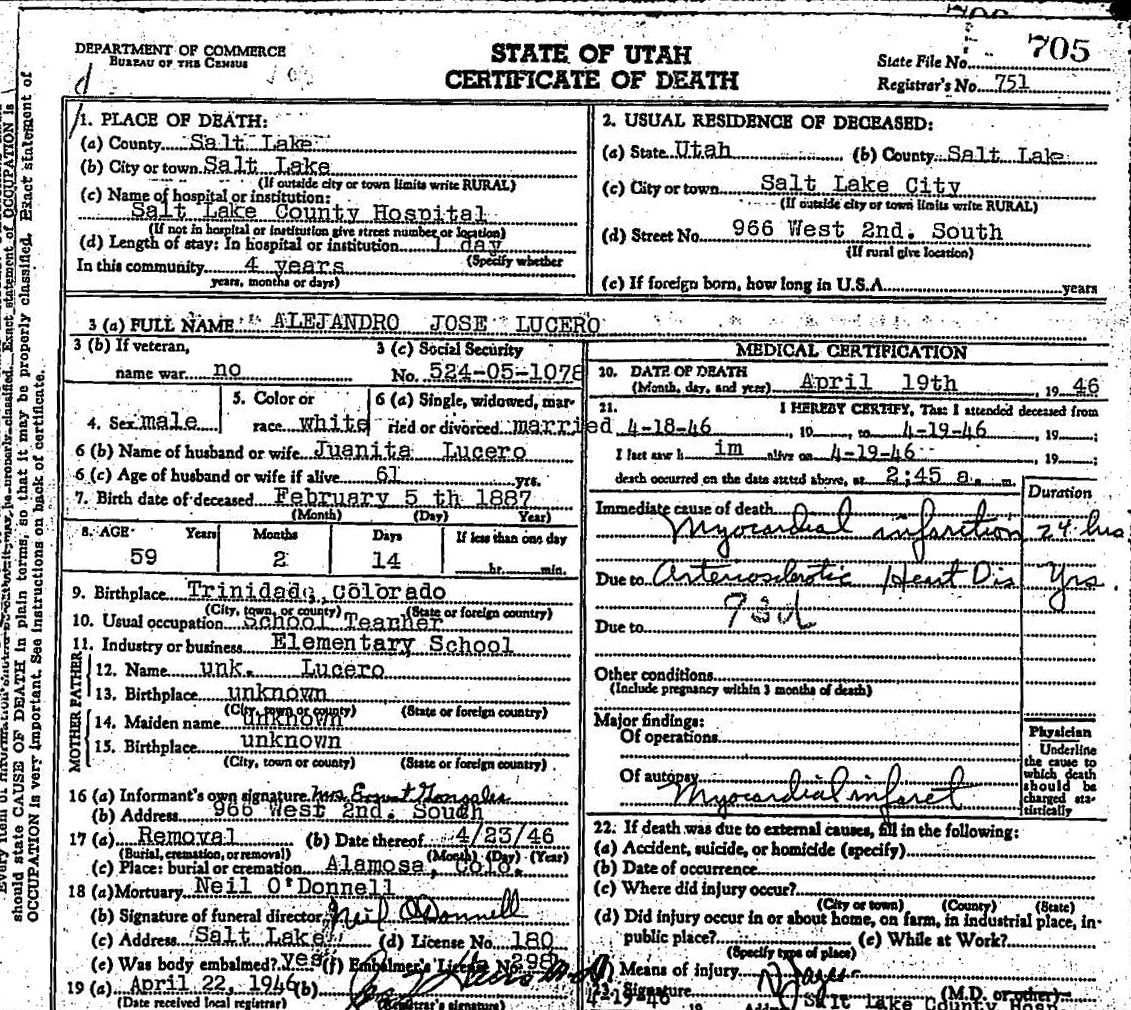 705
DEPARTMENT OF COMMERCE
BUREAU OF THE CENSUS
STATE OF UTAH
CERTIFICATE OF DEATH
State File No. 705
Registrar's No. 751
1. PLACE OF DEATH:
(a) County Salt Lake
(b) City or town Salt Lake
(If outside city or town limits write RURAL)
(c) Name of hospital or institution:
Salt Lake County Hospital
(If not in hospital or institution give street number or location)
(d) Length of stay: In hospital or institution 1 day
(Specify whether
In this community 4 years
years, months or days)
2. USUAL RESIDENCE OF DECEASED:
(a) State Utah (b) County Salt Lake
(c) City or town Salt Lake City
(If outside city or town limits write RURAL)
(d) Street No. 966 West 2nd. South
(If rural give location)
(e) If foreign born, how long in U.S.A. years
3 (a) FULL NAME ALEJANDRO JOSE LUCERO
3 (b) If veteran,
name war no
3 (c) Social Security
No. 524-05-1078
4. Sex male
5. Color or
race white
6 (a) Single, widowed, mar-
ried or divorced married
6 (b) Name of husband or wife Juanita Lucero
6 (c) Age of husband or wife if alive 61 yrs.
7. Birth date of deceased February 5 th 1887
(Month) (Day) Year)
8. AGE Years Months Days If less than one day
59 2 14 hr. min.
9. Birthplace Trinidad, Colorado
(City, town, or county) (State or foreign country)
10. Usual occupation School Teacher
11. Industry or business Elementary School
FATHER
12. Name unk. Lucero
13. Birthplace unknown
(City, town or county) (State or foreign country)
MOTHER
14. Maiden name unknown
15. Birthplace unknown
(City, town or county) (State or foreign country)
16 (a) Informant's own signature Mrs Ernest Gonzales
(b) Address 966 West 2nd. South
17 (a) Removal (b) Date thereof 4/23/46
(Burial, cremation, or removal) (Month) (Day) (Year)
(c) Place: burial or cremation Alamosa, Colo.
18 (a) Mortuary Neil O'Donnell
(b) Signature of funeral director Neil O'Donnell
(c) Address Salt Lake (d) License No. 180
(e) Was body embalmed? yes (f) Embalmer's License No. 298
19 (a) April 22, 1946 (b)
(Date received local registrar) (Registrar's signature)
MEDICAL CERTIFICATION
20. DATE OF DEATH
(Month, day, and year) April 19th, 19 46
21. I HEREBY CERTIFY, That I attended deceased from
4-18-46, 19 , to 4-19-46, 19 ;
I last saw h im alive on 4-19-46, 19 ;
death occurred on the date stated above, at 2:45 a. m.
Duration
Immediate cause of death
Myocardial infarction 24 hrs
Due to Arteriosclerotic Heart Dis Yrs.
93d
Due to
Other conditions
(Include pregnancy within 3 months of death)
Major findings:
Of operations
Of autopsy
Myocardial infarct
Physician
Underline
the cause to
which death
should be
charged sta-
tistically
22. If death was due to external causes, fill in the following:
(a) Accident, suicide, or homicide (specify)
(b) Date of occurrence
(c) Where did injury occur?
(City or town) (County) (State)
(d) Did injury occur in or about home, on farm, in industrial place, in
public place? (e) While at Work?
(Specify type of place)
Means of injury
23. Signature (M.D. or other)
4-19-46 19 Address Salt Lake County Hosp.
should state CAUSE OF DEATH in plain terms, so that it may be properly classified. Exact statement of
OCCUPATION is very important. See instructions on back of certificate.